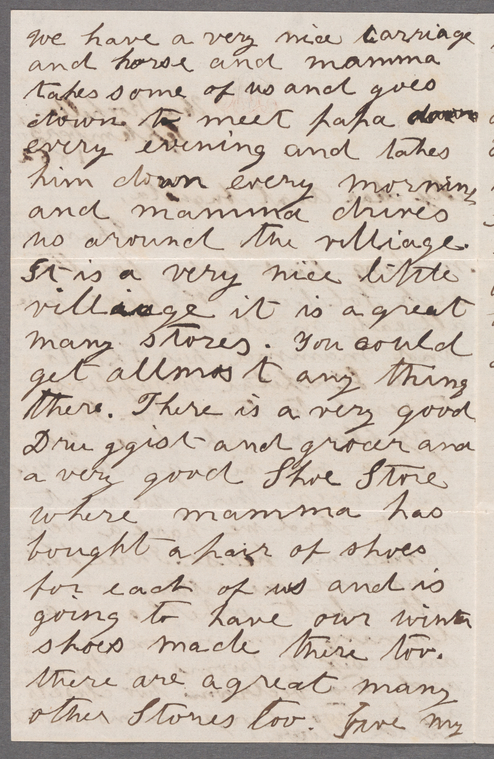 we have a very nice carriage
and horse and mamma
takes some of us and goes
down to meet papa
every evening and takes
him down every morning
and mamma drives
us around the villiage.
It is a very nice little
villiage it is a great
many stores. You could
get allmost any thing
there. There is a very good
Druggist and grocer and
a very good Shoe Store
where mamma has
bought a pair of shoes
for each of us and is
going to have our winter
shoes made there too.
there are a great many
other Stores too. Give my